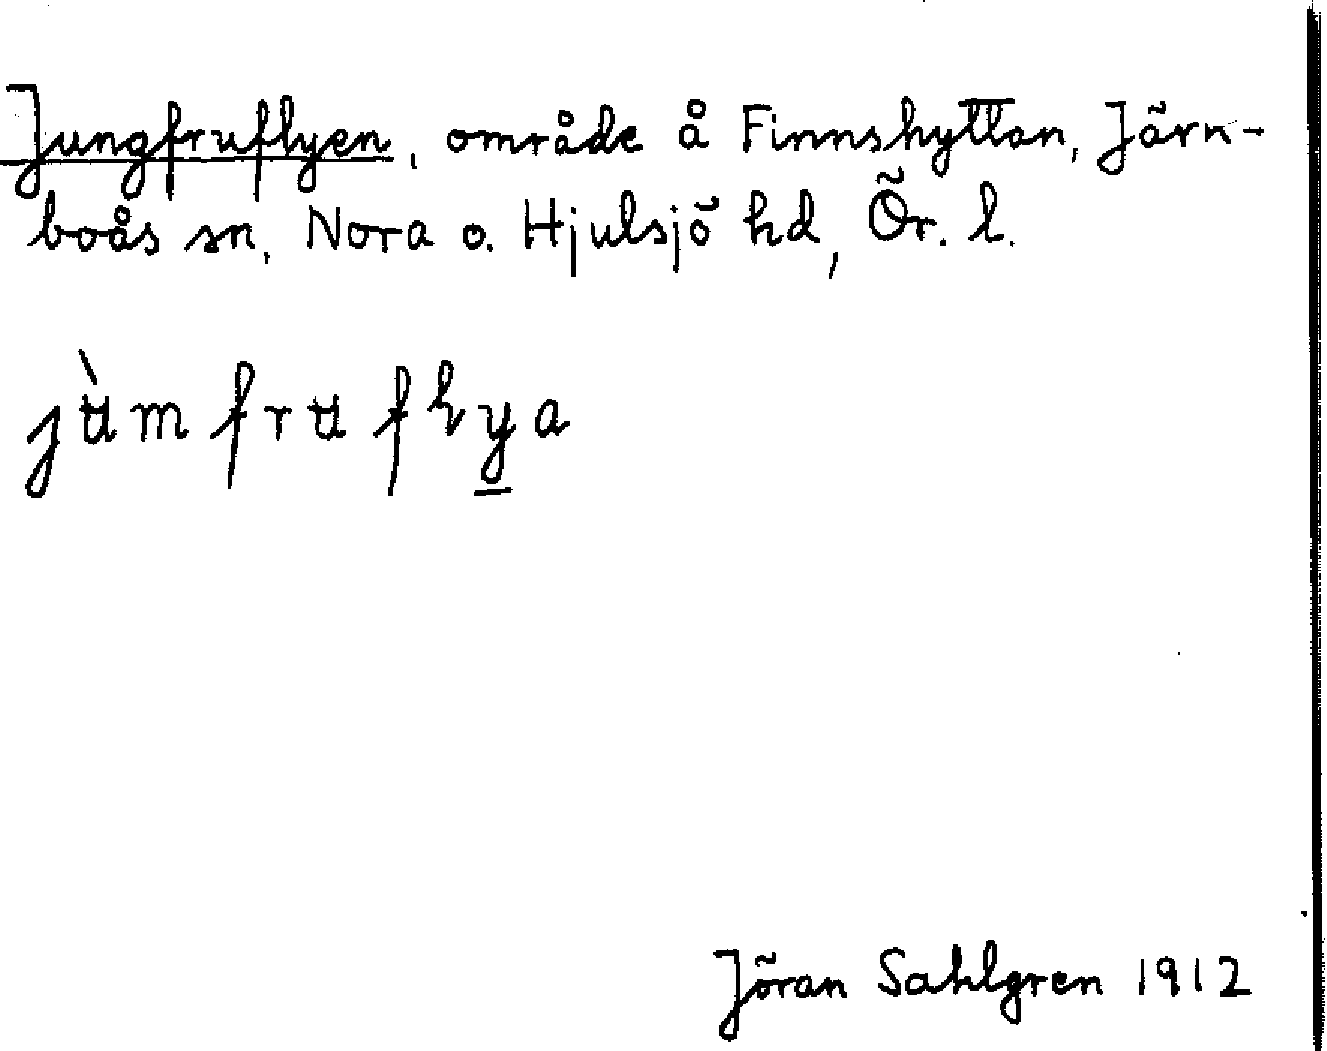 Jungfruflyen, område å Finnshyttan, Järn-
boås sn, Nora o. Hjulsjö hd, Ör. l.
jùmfruflya
Jöran Sahlgren 1912